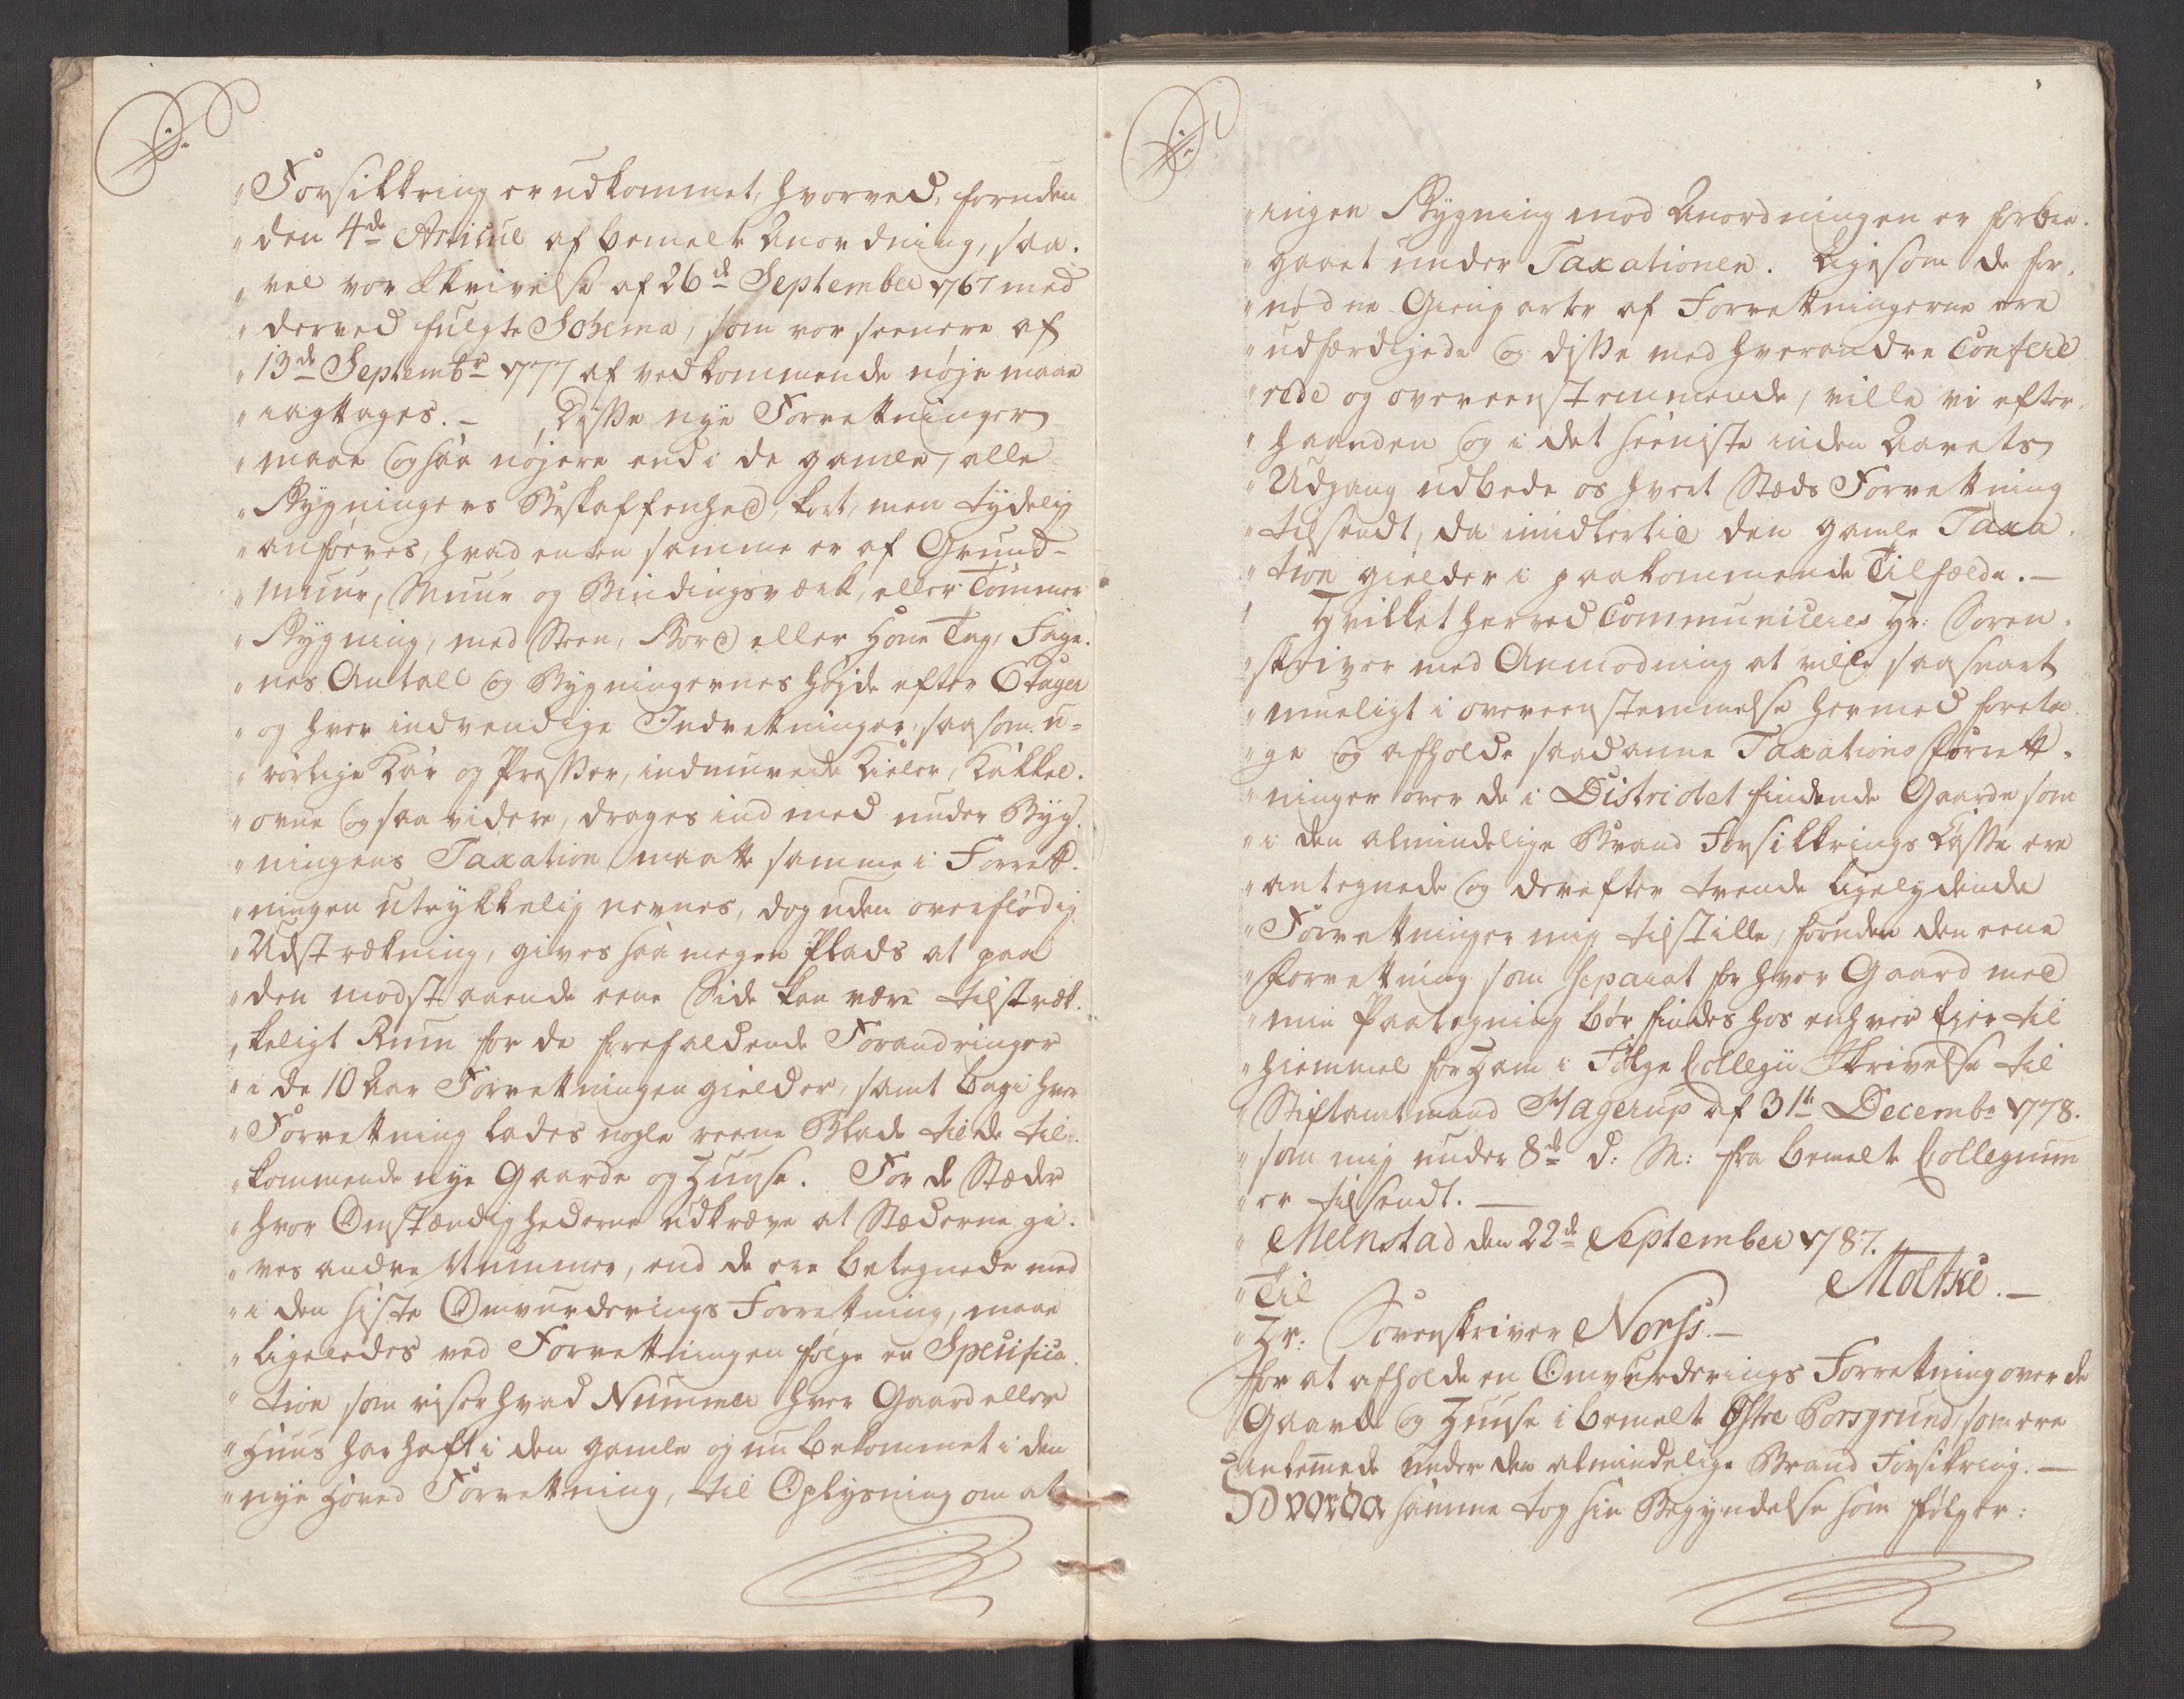 "Forsikkring er udkommet, hvorved, foruden
"den 4de Articul af bemelte Anordning, saa-
"vel vor Skrivelse af 26de September 1767 med
"derved fulgte Schema, som vor seenere af
"13de Septembr 1777 af vedkommende nøje maae
"iagttages. – Disse nye Forretninger
"maae og saa nøjere end i de gamle, alle
"Bygningers Beskaffenhed, kort, men tydelig
"anføeres, hvad enten samme er af Grund-
"muur, Muur og Bindingsværk, eller Tømmer
"Bygning, med Steen, Bord eller Hone Tag, Fage-
"nes Antall og Bygningernes Højde efter Etager
"og hver indvendige Indretninger, saasom u-
"rørlige Kar og Presser, indmurede Kieler, Kakkel-
"ovne og saa videre, drages ind med under Byg-
"ningens Taxation maatte samme i Forrett-
"ningen utrykkelig nevnes, dog uden overflødig
"Udstrækning, gives saa megen Plads at paa
"den modstaaende eene Side kan være tilstræk-
"keligt Rum for de forefaldende Forandringer
"i de 10 Aar Forretningen gielder, samt bag i hver
"Forretning lades nogle reene Blade til de til-
"kommende nye Gaarde og Huuse. For de Stæder
"hvor Omstændighederne udkræve at Stæderne gi-
"ves andre Nummer, end de ere betegnede med
"i den siste Omvurderings Forretning, maae
"ligeledes ved Forretningen følge en Specifica-
"tion som viser hvad Nummer hver Gaard eller
"Huus har haft i den gamle og nu bekommet i den
"nye Hoved Forretning, til Oplysning om at
"ingen Bygning mod Anordningen er forbie-
"gaaet under Taxationen. Ligesom de for-
"nødne Gienparter af Forretningerne ere
"udfærdigede og disse med hverandre Confere
"rede og overeenstemmende, ville vi efter-
"haanden og i det seeniste inden Aarets
"Udgang udbede os hvert Stæds Forretning
"tilsendt, da imidlertid den gamle Taxa-
"tion gielder i paakommende Tilfælde. –
" Hvilket herved Communiceres Hr: Soren-
"skriver med Anmodning at ville saa snart
"mueligt i overeenstemmelse hermed foreta-
"ge og afholde saadanne Taxations Forrett-
"ninger over de i Districtet findende Gaarde som
"i den almindelige Brand Forsikkrings Casse ere
"antegnede og derefter trende ligelydende
"Forretninger mig tilstille, foruden den eene
"Forretning som separat for hver Gaard med
"min Paategning bør findes hos enhver Ejer til
"Hiemmel for ham i Følge Collegii Skrivelse til
"Stiftamtmand Hagerup af 31te Decembr 1778.
"som mig under 8de d: M: fra bemelte Collegium
"er tilsendt. –
" Melnstad den 22de September 1787.
Moltke. –
"Til
"Hr: Sorenskriver Norss. –
for at afholde en Omvurderings Forretning over de
Gaarde og Huuse i bemelte Østre Porsgrund, som ere
antemede under den almindelige Brand Forsikring. –
Hvorda samme tog sin Begyndelse som følger: